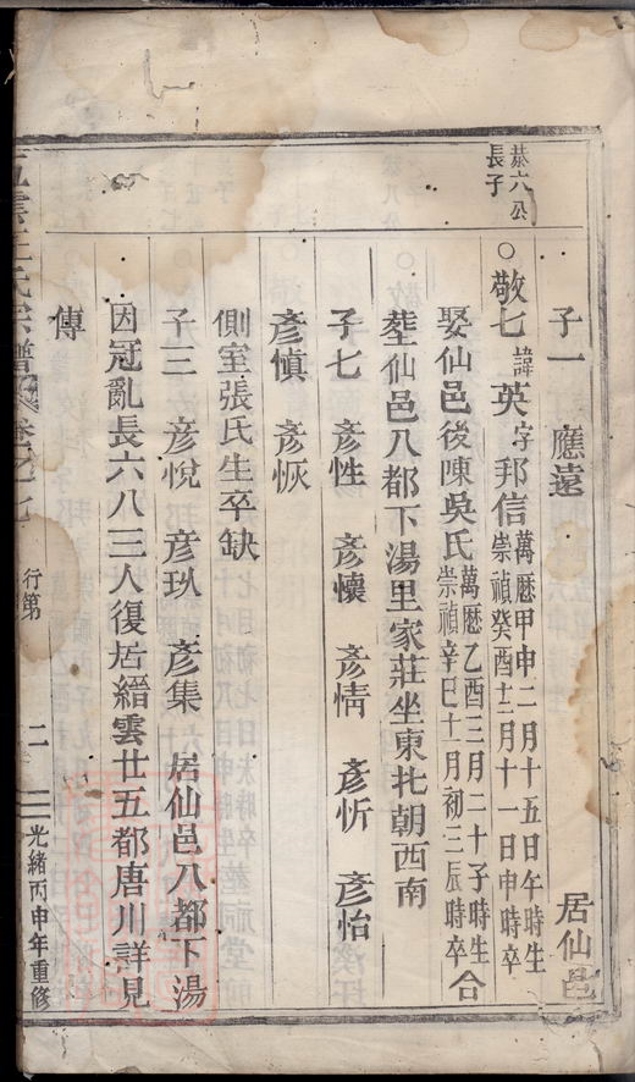 恭六公
長子
子一 應遠 居仙邑
○敬七諱英字邦信萬曆甲申二月十五日午時生
崇禎癸酉十二月十一日申時卒
娶仙邑後陳吳氏萬曆乙酉三月二十子時生
崇禎辛巳十一月初三辰時卒合
塟仙邑八都下湯里家莊坐東北朝西南
子七 彥性 彥懷 彥情 彥忻 彥怡
彥慎 彥恢
側室張氏生卒缺
子三 彥悅 彥𤣯 彥集 居仙邑八都下湯
因冦亂長六八三人復居縉雲廿五都唐川詳見
傳
五雲王氏宗譜 卷之七 行第 二 光緒丙申年重修